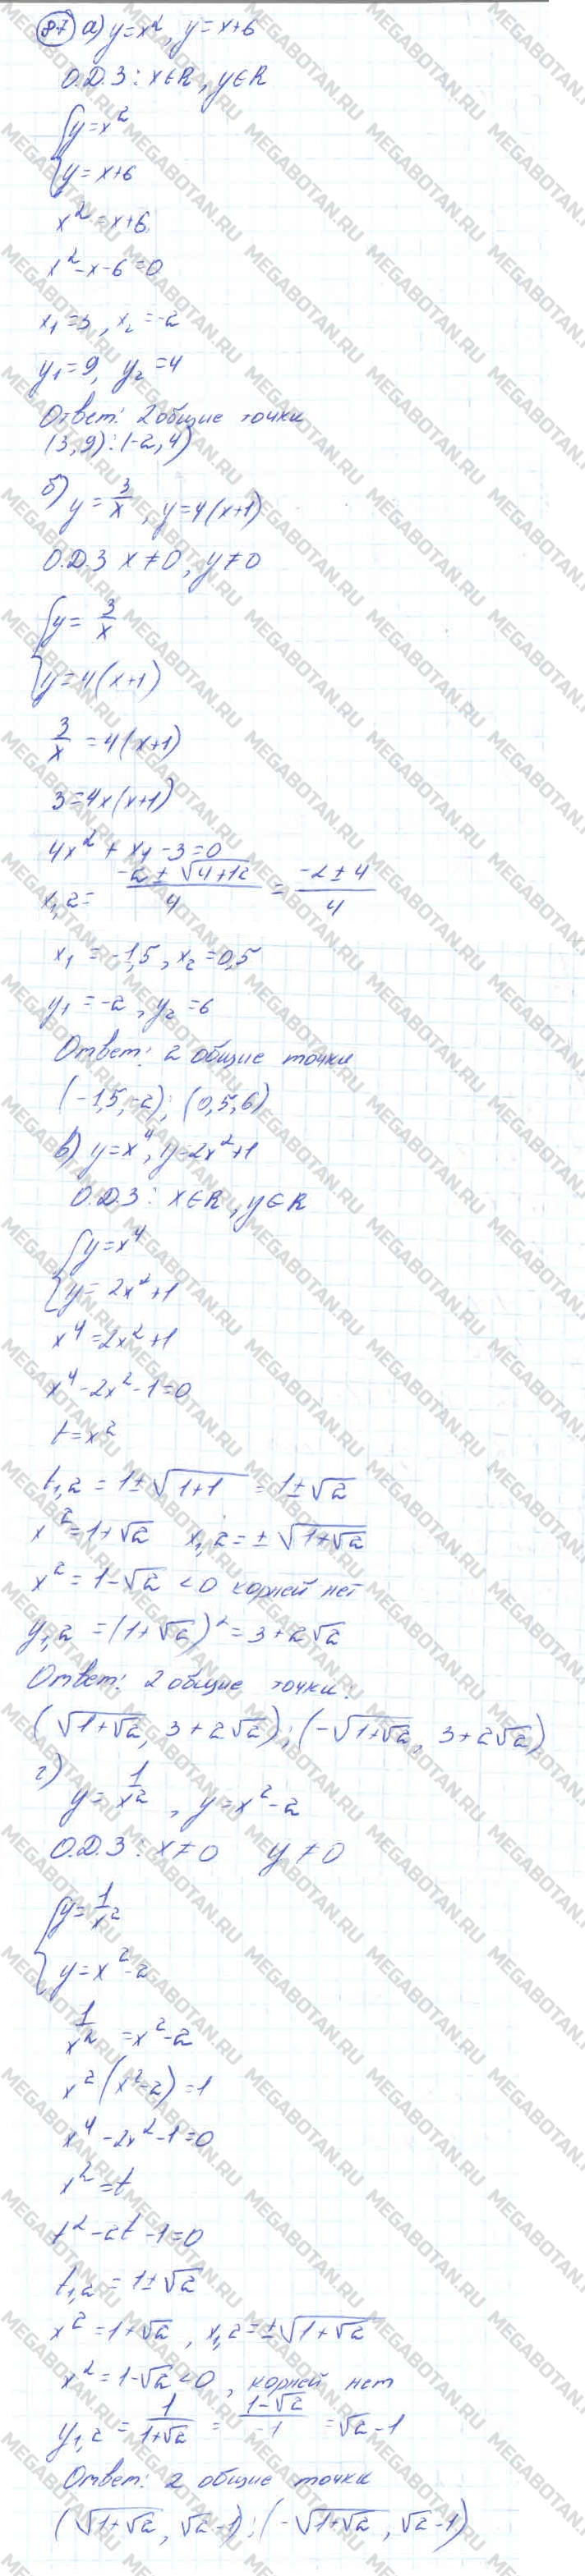 87 а) y=x², y=x+6
О.Д.З: x∈R, y∈R
{y=x²
{y=x+6
x²=x+6
x²-x-6=0
x₁=3, x₂=-2
y₁=9, y₂=4
Ответ: 2 общие точки
(3,9):(-2,4)
б) y=3/x, y=4(x+1)
О.Д.З x≠0, y≠0
{y=3/x
{y=4(x+1)
3/x=4(x+1)
3=4x(x+1)
4x²+x₄-3=0
x₁,₂=(-2±√4+12)/4=(-2±4)/4
x₁=-1,5, x₂=0,5
y₁=-2, y₂=6
Ответ: 2 общие точки
(-1,5,-2); (0,5,6)
в) y=x⁴, y=2x²+1
О.Д.З: x∈R, y∈R
{y=x⁴
{y=2x²+1
x⁴=2x²+1
x⁴-2x²-1=0
t=x²
t₁,₂=1±√1+1=1±√2
x²=1+√2 x₁,₂=±√(1+√2)
x²=1-√2<0 корней нет
y₁,₂=(1+√2)²=3+2√2
Ответ: 2 общие точки:
(√(1+√2), 3+2√2); (-√(1+√2), 3+2√2)
г) y=1/x², y=x²-2
О.Д.З: x≠0 y≠0
{y=1/x²
{y=x²-2
1/x²=x²-2
x²(x²-2)=1
x⁴-2x²-1=0
x²=t
t²-2t-1=0
t₁,₂=1±√2
x²=1+√2, x₁,₂=±√(1+√2)
x²=1-√2<0, корней нет
y₁,₂=1/(1+√2)=(1-√2)/-1=√2-1
Ответ: 2 общие точки
(√(1+√2), √2-1); (-√(1+√2), √2-1)
MEGABOTAN.RU